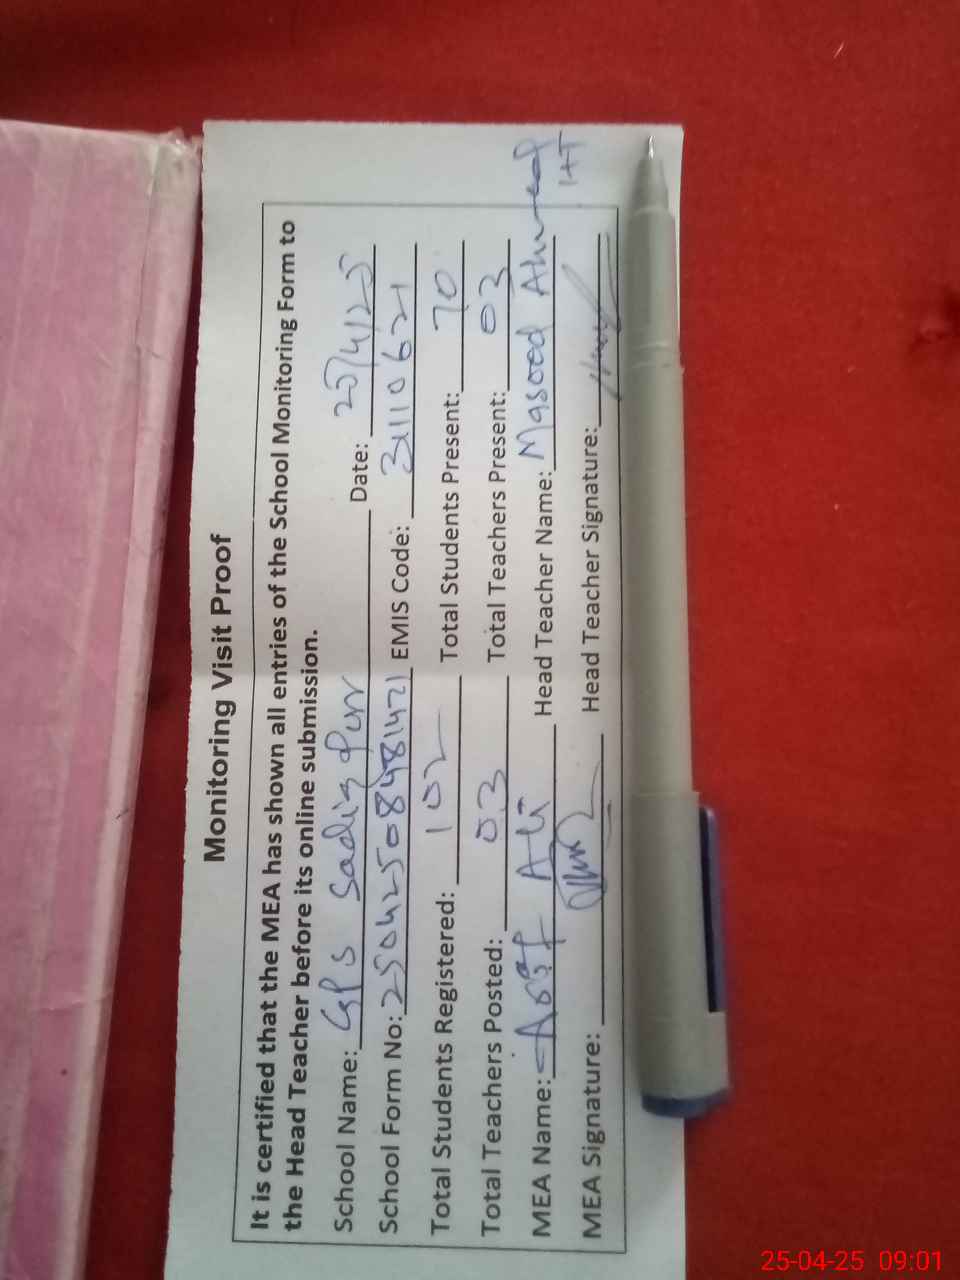 Monitoring Visit Proof
It is certified that the MEA has shown all entries of the School Monitoring Form to
the Head Teacher before its online submission.
School Name: GPS Sadiq Purr Date: 25/4/25
School Form No: 25042508481421 EMIS Code: 31110621
Total Students Registered: 102 Total Students Present: 70
Total Teachers Posted: 03 Total Teachers Present: 03
MEA Name: Asif Ali Head Teacher Name: Masood Ahmed
MEA Signature: Head Teacher Signature:
25-04-25 09:01